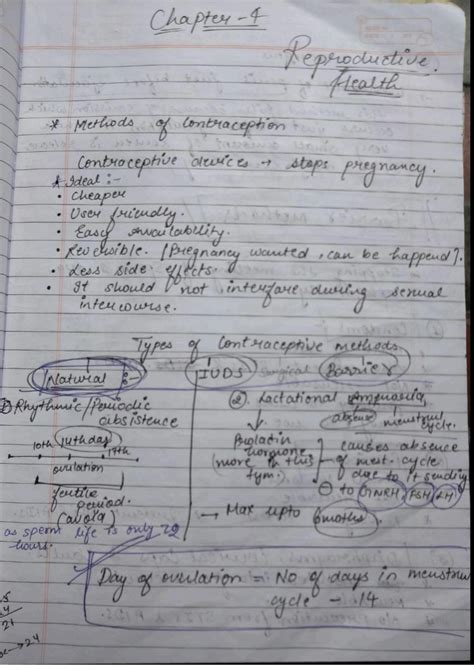 Chapter-4
Reproductive
Health
* Methods of Contraception
Contraceptive devices → stops pregnancy.
* Ideal :-
• Cheaper
• User friendly.
• Easy availability.
• Reversible. [Pregnancy wanted, can be happend].
• Less side effects.
• It should not interfare during sexual
intercourse.
Types of Contraceptive methods
Natural :- IUDS Surgical Barrier
① Rhythmic/Periodic
abisistence
10th 14th day 17th
ovulation
fertile
period.
as sperm life is only 72
hours.
② Lactational
absence menstrual
cycle.
↓
Prolactin
hormone
(more in this
tym.)
causes absence
of mest. cycle
due to it sending
⊖ to GNRH, FSH, LH
→ Max upto 6 moths.
Day of ovulation = No of days in menstrual
cycle - 14
24